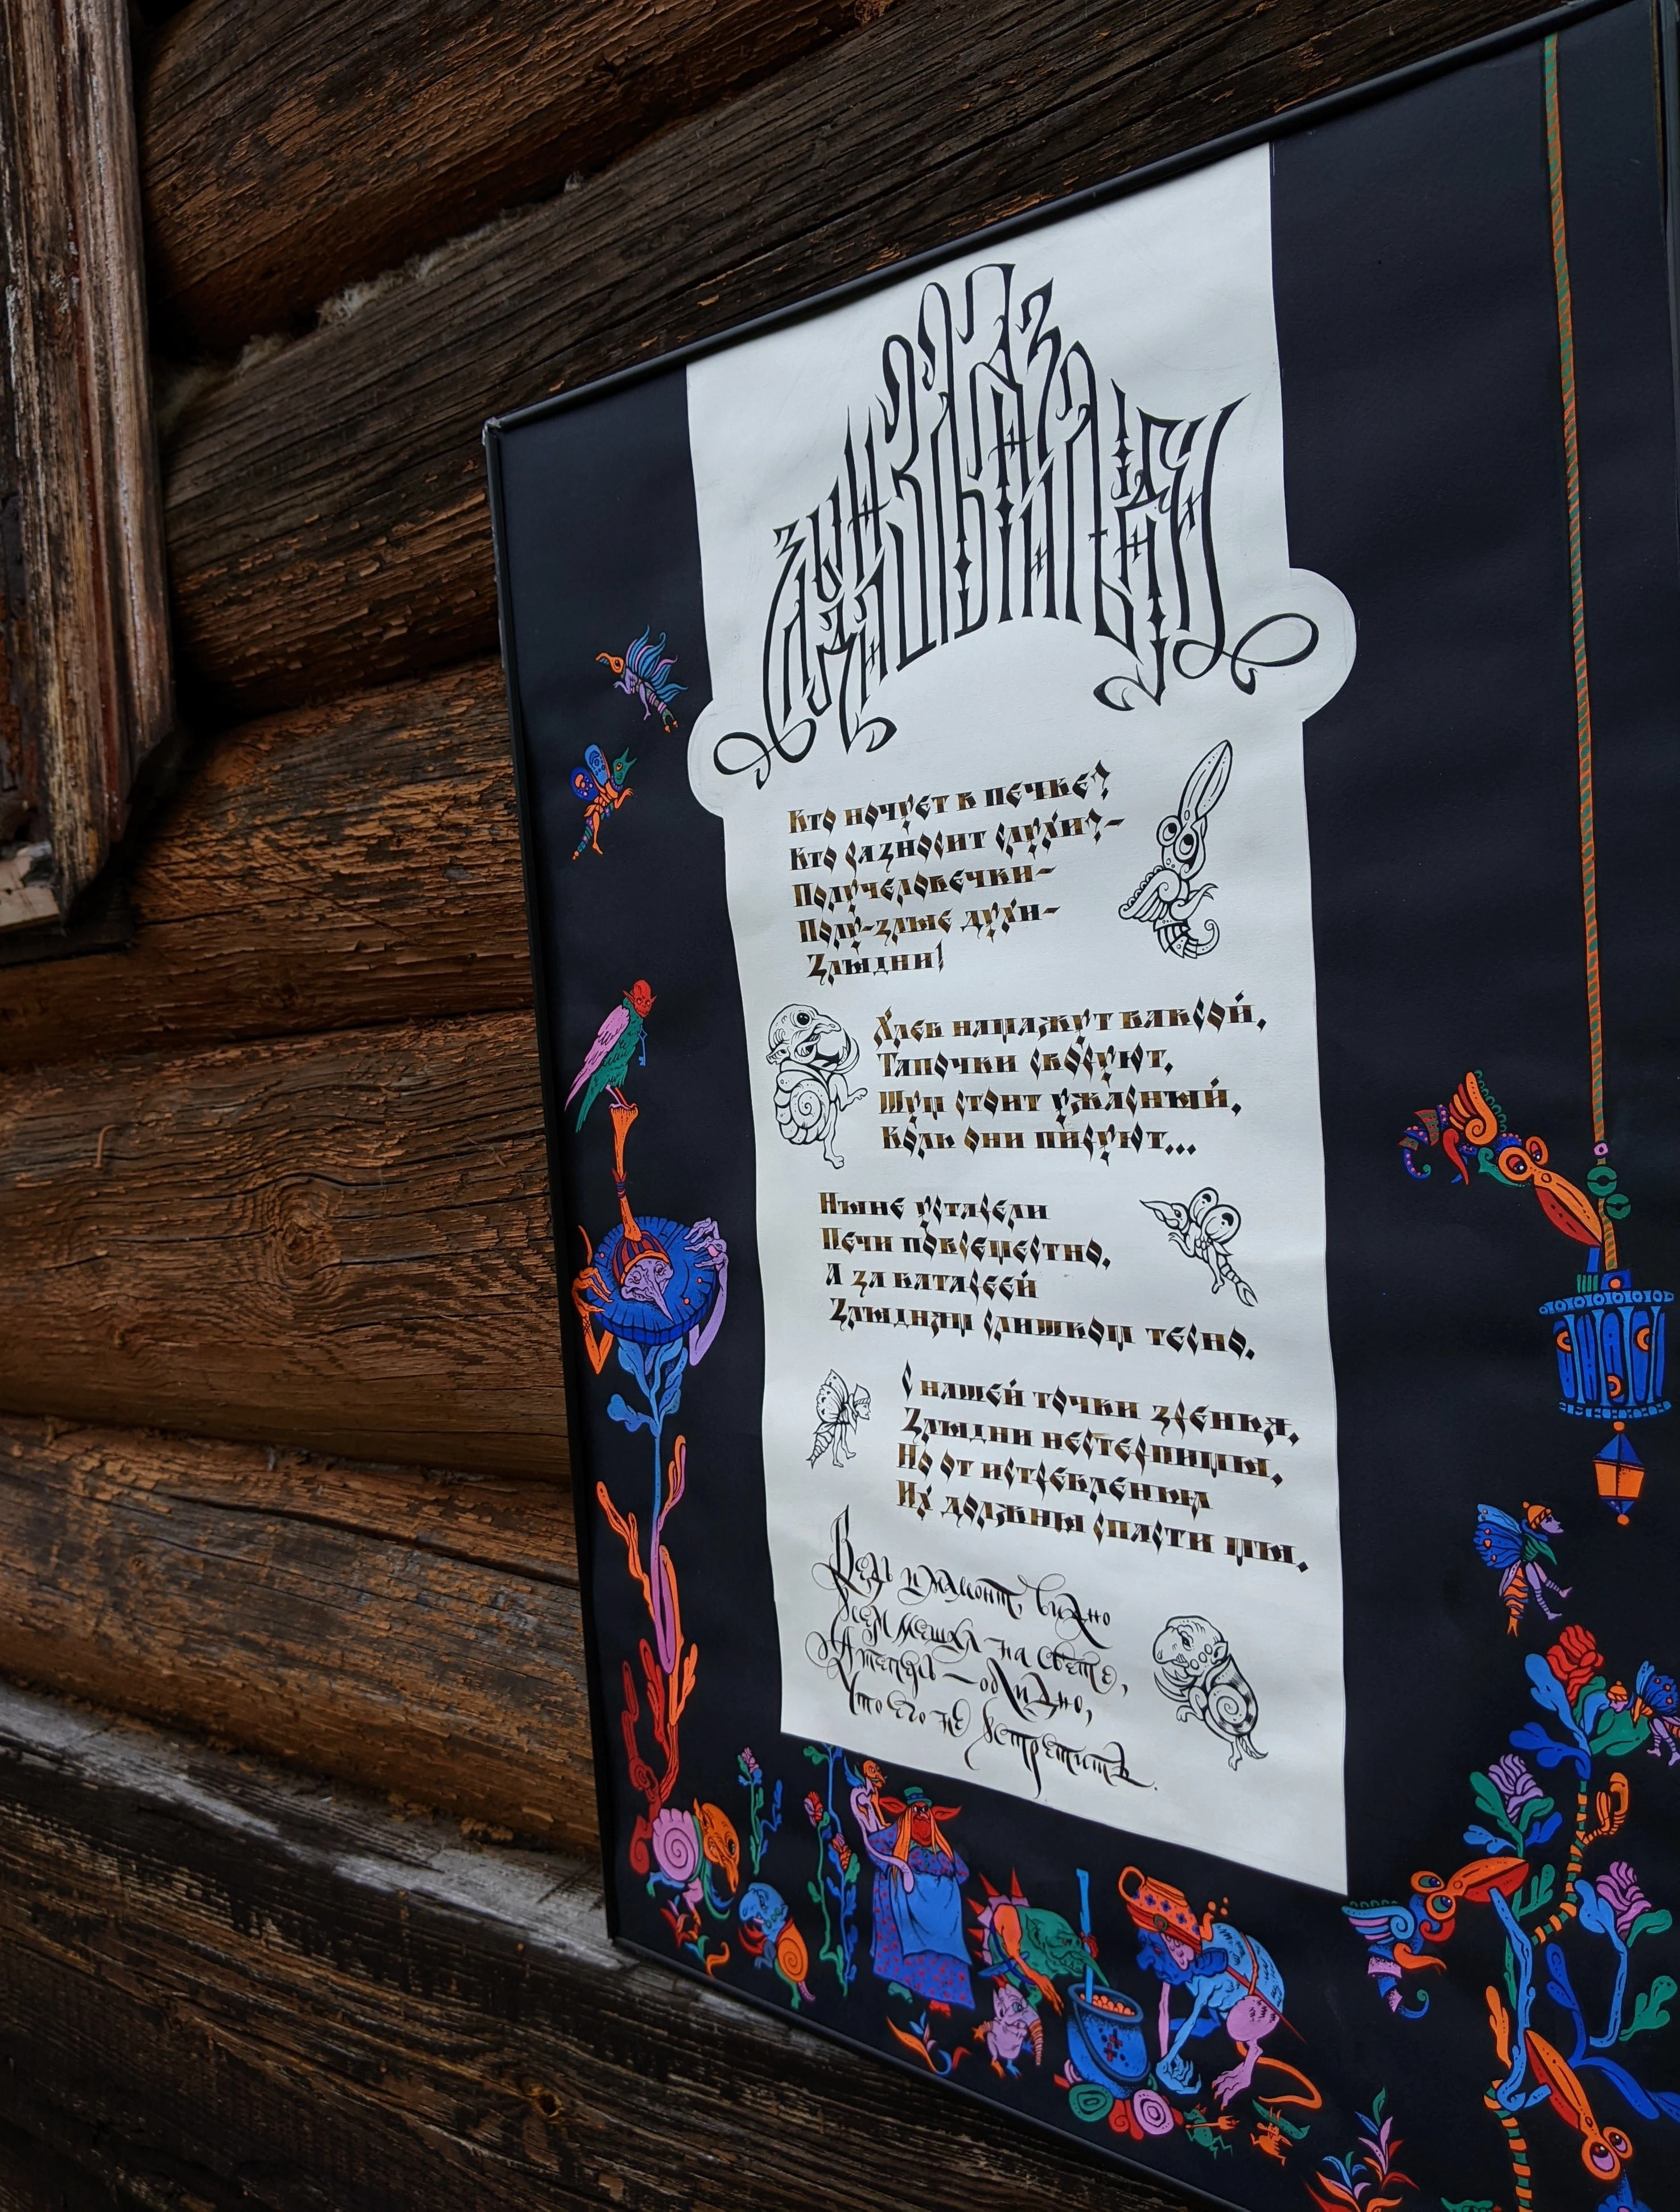 Кто ночует в печке?
Кто разносит слухи?–
Получеловечки–
Полу-злые духи–
Злыдни!
Хлеб намажут ваксой,
Тапочки своруют,
Шум стоит ужасный,
Коль они пируют...
Ныне устарели
Печи повсеместно,
А за батареей
Злыдням слишком тесно.
С нашей точки зренья,
Злыдни нестерпимы,
Но от истребленья
Их должны спасти мы.
Ведь и мамонт, видно
Всем мешал на свете,
А теперь – обидно,
Что его не встретить.